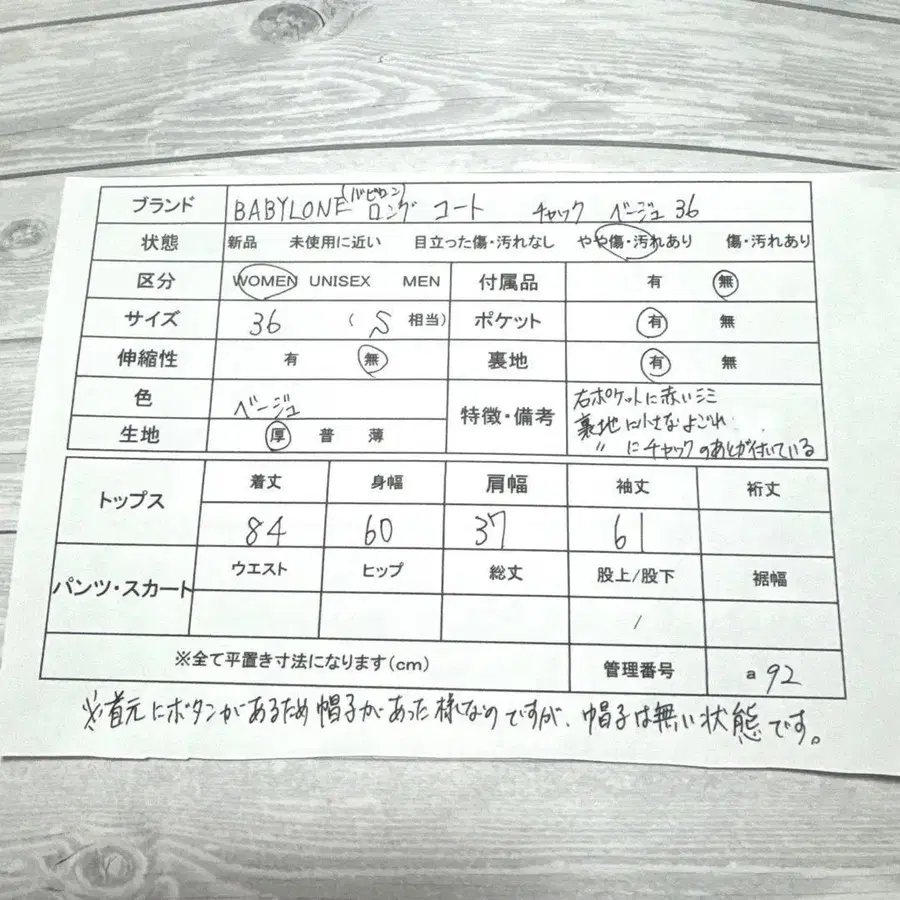 ブランド BABYLONE (バビロン) ロング コート チャック ベージュ 36
状態 新品 未使用に近い 目立った傷・汚れなし やや傷・汚れあり 傷・汚れあり
区分 WOMEN UNISEX MEN 付属品 有 無
サイズ 36 ( S 相当) ポケット 有 無
伸縮性 有 無 裏地 有 無
色 ベージュ 特徴・備考 右ポケットに赤いシミ
裏地に小さなよごれ
生地 厚 普 薄 〃 にチャックのあとが付いている
トップス 着丈 身幅 肩幅 袖丈 裄丈
84 60 37 61
パンツ・スカート ウエスト ヒップ 総丈 股上/股下 裾幅
/
※全て平置き寸法になります(cm) 管理番号 a 92
※首元にボタンがあるため帽子があった様なのですが、帽子は無い状態です。